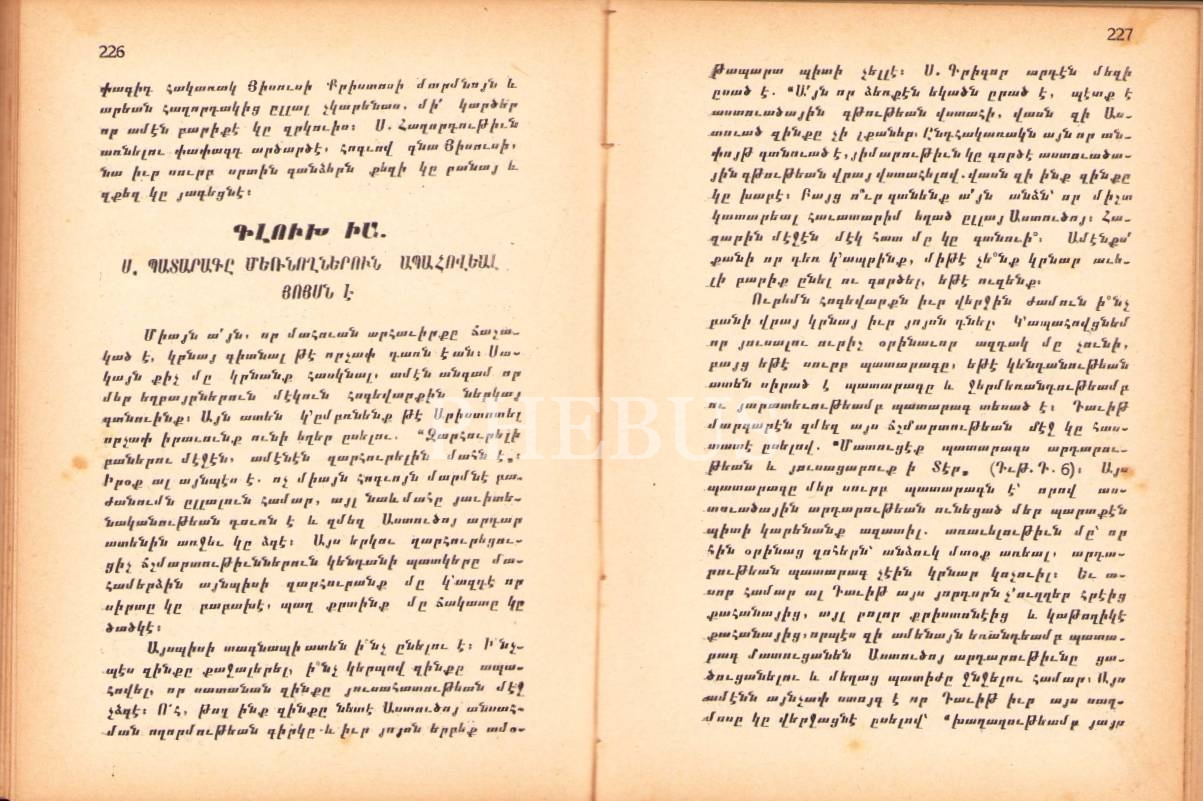 226
փագիդ հակառակ Յիսուսի Քրիստոսի մարմնոյն և
արեան հաղորդակից ըլլալ չկարենաս. մի՛ կարծեր
որ ամէն բարիքէ կը զրկուիս։ Ս. Հաղորդութիւն
առնելու փափագդ արծարծէ, հոգւով գնա Յիսուսի,
նա իւր սուրբ սրտին գանձերն քեզի կը բանայ և
զքեզ կը յագեցնէ։
ԳԼՈՒԽ ԻԱ.
Ս. ՊԱՏԱՐԱԳԸ ՄԵՌՆՈՂՆԵՐՈՒՆ ԱՊԱՀՈՎԵԱԼ
ՅՈՅՍՆ Է
Միայն ա՛յն, որ մահուան արհաւիրքը ճաշա-
կած է, կրնայ գիտնալ թէ որչափ դառն է ան։ Սա-
կայն քիչ մը կրնանք հասկնալ, ամէն անգամ որ
մեր եղբայրներուն մէկուն հոգեվարքին ներկայ
գտնուինք։ Այն ատեն կ՚ըմբռնենք թէ Արիստոտել
որչափ իրաւունք ունի եղեր ըսելու. “Զարհուրելի
բաներու մէջէն, ամէնէն զարհուրելին մահն է„։
Իրօք ալ այնպէս է. ոչ միայն հոգւոյն մարմնէ բա-
ժանումն ըլլալուն համար, այլ նաև մահը յաւիտե-
նականութեան դուռն է և զմեզ Աստուծոյ արդար
ատենին առջեւ կը ձգէ։ Այս երկու զարհուրեցու-
ցիչ ճշմարտութիւններուն կենդանի պատկերը մա-
համերձին այնպիսի զարհուրանք մը կ՚ազդէ որ
սիրտը կը բաբախէ, պաղ քրտինք մը ճակատը կը
ծածկէ։
Այսպիսի տագնապի ատեն ի՞նչ ընելու է։ Ի՞նչ-
պէս զինքը քաջալերել, ի՞նչ կերպով զինքը ապա-
հովել, որ սատանան զինքը յուսահատութեան մէջ
չձգէ։ Ո՜հ, թող ինք զինքը նետէ Աստուծոյ անսահ-
ման ողորմութեան գիրկը և իւր յոյսն երբեք ամօ-
227
թապարտ պիտի չելլէ։ Ս. Գրիգոր արդէն մեզի
ըսած է. “Ա՛յն որ ձեռքէն եկածն ըրած է, պէտք է
աստուածային գթութեան վստահի, վասն զի Աս-
տուած զինքը չի լքաներ. Ընդհակառակն այն որ ան-
փոյթ գտնուած է, յիմարութիւն կը գործէ աստուածա-
յին գթութեան վրայ վստահելով. վասն զի ինք զինքը
կը խաբէ։ Բայց ո՞ւր գտնենք ա՛յն անձն՝ որ միշտ
կատարեալ հաւատարիմ եղած ըլլայ Աստուծոյ։ Հա-
զարին մէջէն մէկ հատ մը կը գտնուի՞։ Ամէնքս՝
քանի որ դեռ կ՚ապրինք, միթէ չե՞նք կրնար աւե-
լի բարիք ընել ու գործել, եթէ ուզենք.
Ուրեմն հոգեվարքն իւր վերջին ժամուն ի՞նչ
բանի վրայ կրնայ իւր յոյսն դնել. Կ՚ապահովցնեմ
որ յուսալու ուրիշ օրինաւոր ազդակ մը չունի,
բայց եթէ սուրբ պատարագը, եթէ կենդանութեան
ատեն սիրած է պատարագը և ջերմեռանդութեամբ
ու յարատեւութեամբ պատարագ տեսած է։ Դաւիթ
մարգարէն զմեզ այս ճշմարտութեան մէջ կը հաս-
տատէ ըսելով. “Մատուցէք պատարագս արդարու-
թեան և յուսացարուք ի Տէր„ (Դւթ. Դ. 6)։ Այս
պատարագը մեր սուրբ պատարագն է՝ որով աս-
տուածային արդարութեան ունեցած մեր պարտքէն
պիտի կարենանք ազատիլ. առաւելութիւն մը՝ որ
հին օրինաց զոհերն՝ անձուկ մտօք առեալ, արդա-
րութեան պատարագ չէին կրնար կոչուիլ։ Եւ ա-
սոր համար ալ Դաւիթ այս յորդորն չ՚ուղղեր հրէից
քահանայից, այլ բոլոր քրիստոնէից և կաթողիկէ
քահանայից, որպէս զի ամենայն եռանդեամբ պատա-
րագ մատուցանեն Աստուծոյ արդարութիւնը ցա-
ծուցանելու և մեղաց պատիժը ջնջելու համար։ Այս
ամէնն այնչափ ստոյգ է որ Դաւիթ իւր այս սաղ-
մոսը կը վերջացնէ ըսելով՝ “խաղաղութեամբ յայս
PHEBUS